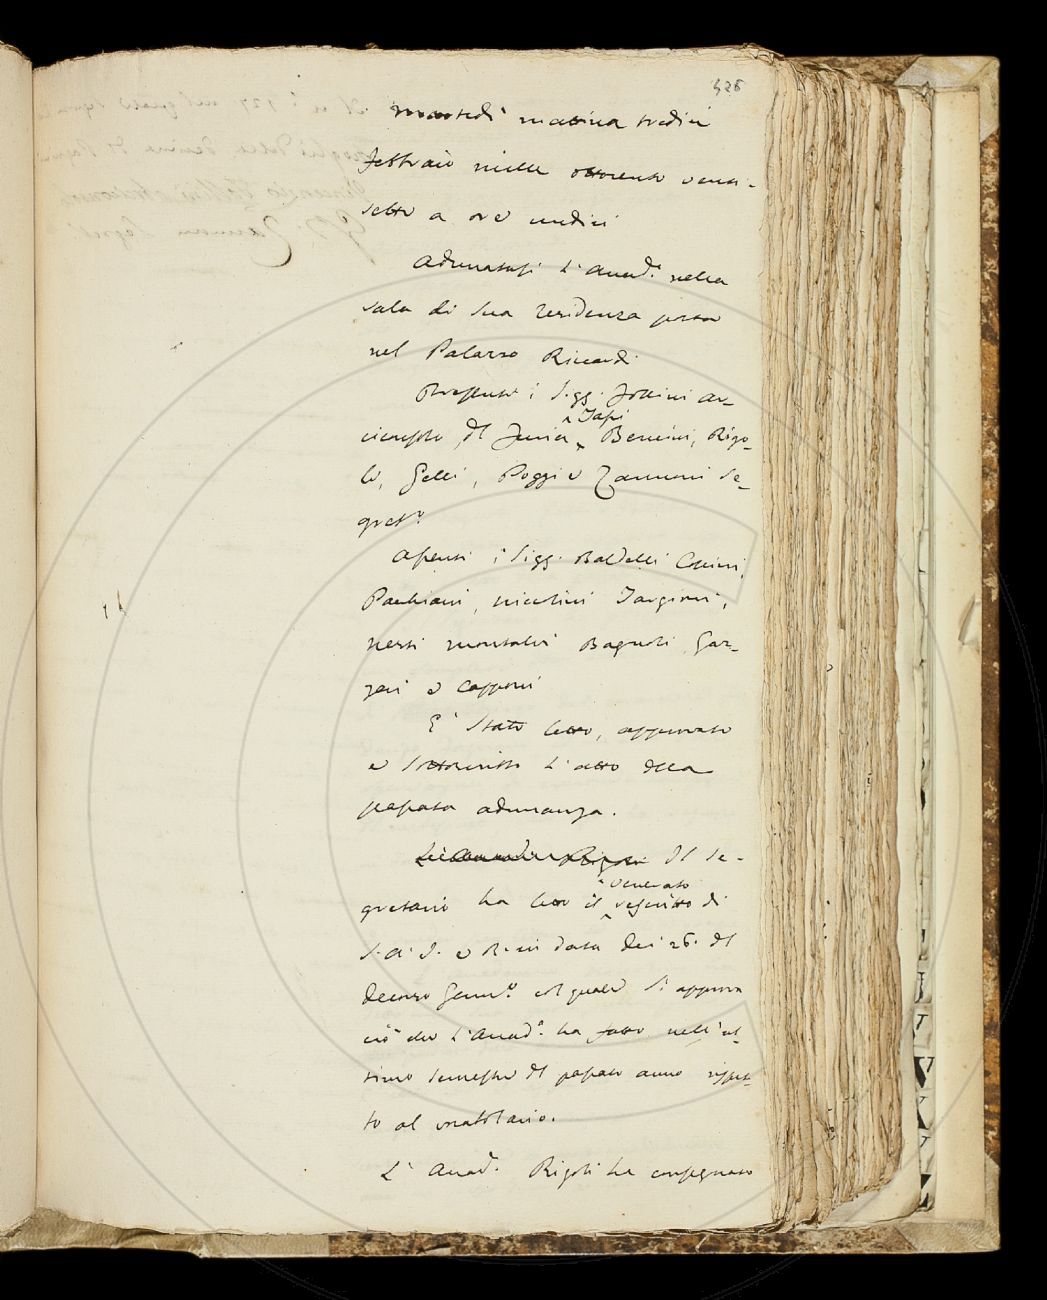 326
Martedì mattina tredici
febbraio mille ottocento venti-
sette a ore undici
Adunatasi l'Accad.ª nella
sala di sua residenza posta
nel Palazzo Riccardi
Presenti i Sigg. Follini ar-
ciconsolo, Del Furia, Tassi Bencini, Rigo-
li, Gelli, Poggi e Zannoni Se-
gret.º
Assenti i Sigg. Baldelli
Pacchiani, Niccolini Targioni,
Nesti Montalvi Bagnoli Gar-
zeri e Capponi
È stato letto, approvato
e sottoscritto l'atto della
passata adunanza.
Il Se-
gretario ha letto il venerato rescritto di
S. A. I. e R. in data dei 26. del
decorso Genn.º col quale si approva
ciò che l'Accad.ª ha fatto nell'ul-
timo semestre del passato anno rispet-
to al vocabolario.
L'Accad. Rigoli ha consegnato